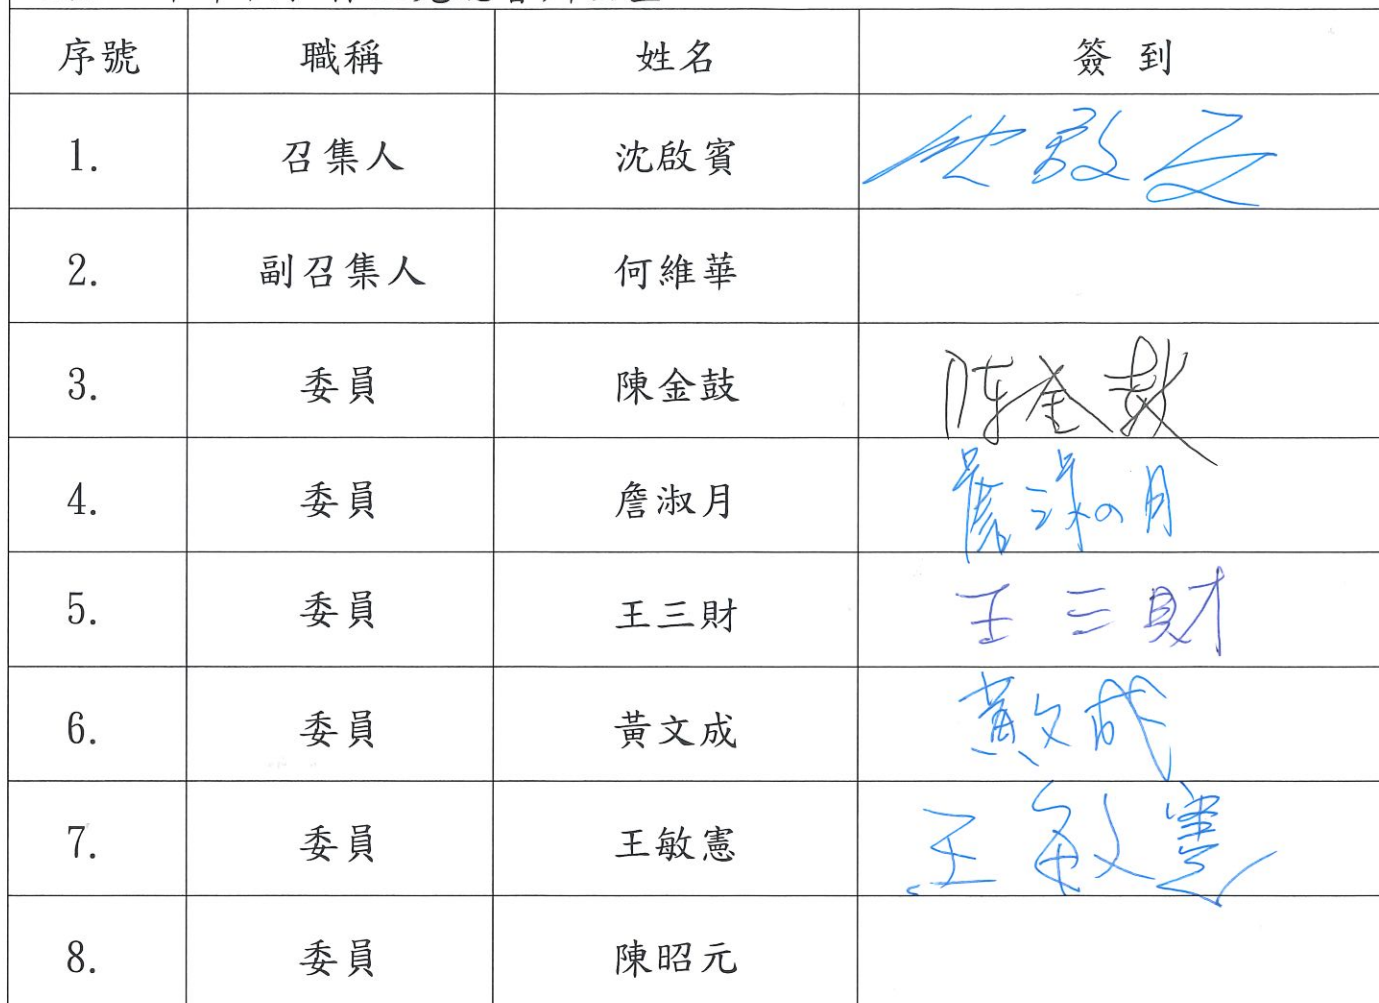 序號 職稱 姓名 簽到
1. 召集人 沈啟賓
2. 副召集人 何維華
3. 委員 陳金鼓 陈金鼓
4. 委員 詹淑月 詹淑月
5. 委員 王三財 王三財
6. 委員 黃文成 黃文成
7. 委員 王敏憲 王敏憲
8. 委員 陳昭元